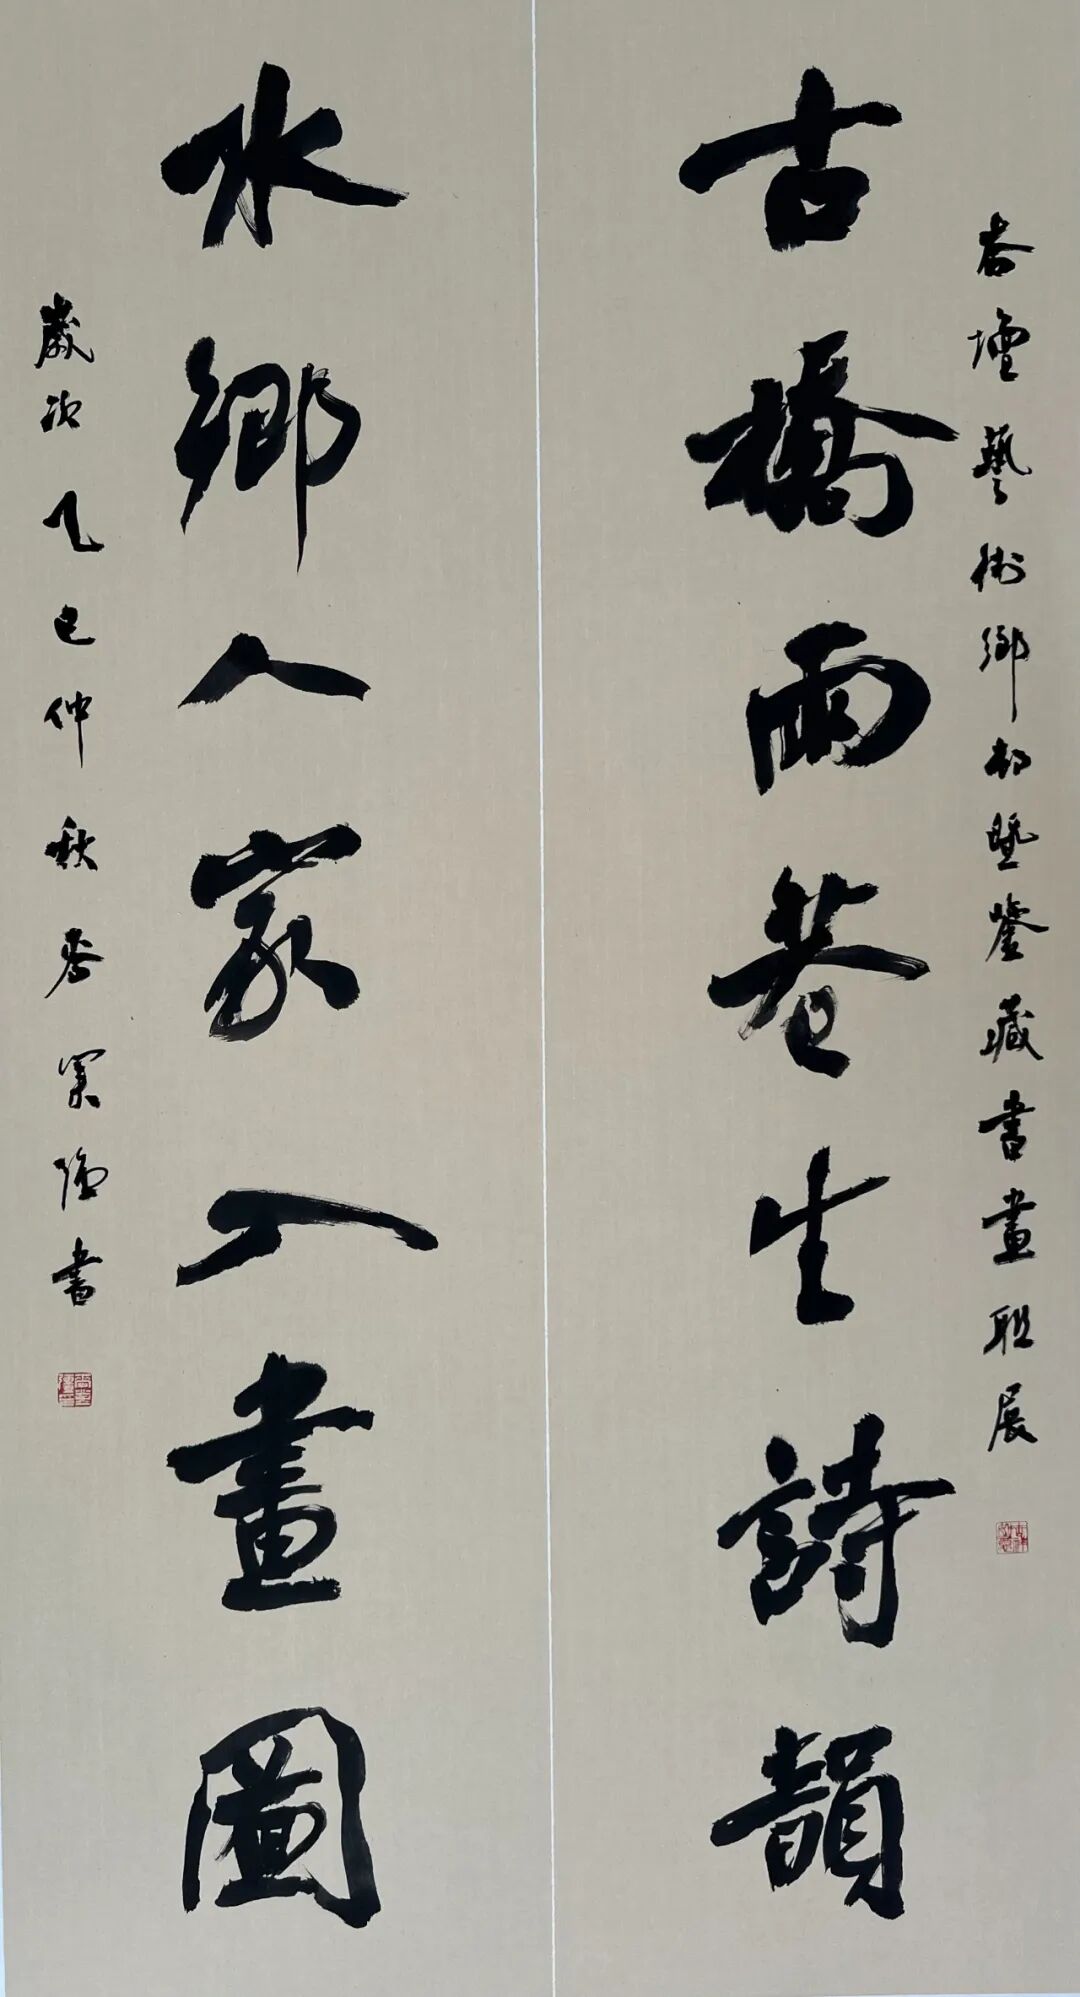 杏壇藝術鄉村暨鑒藏書畫聯展
古橋雨巷生詩韻
水鄉人家入畫圖
歲次乙巳仲秋書